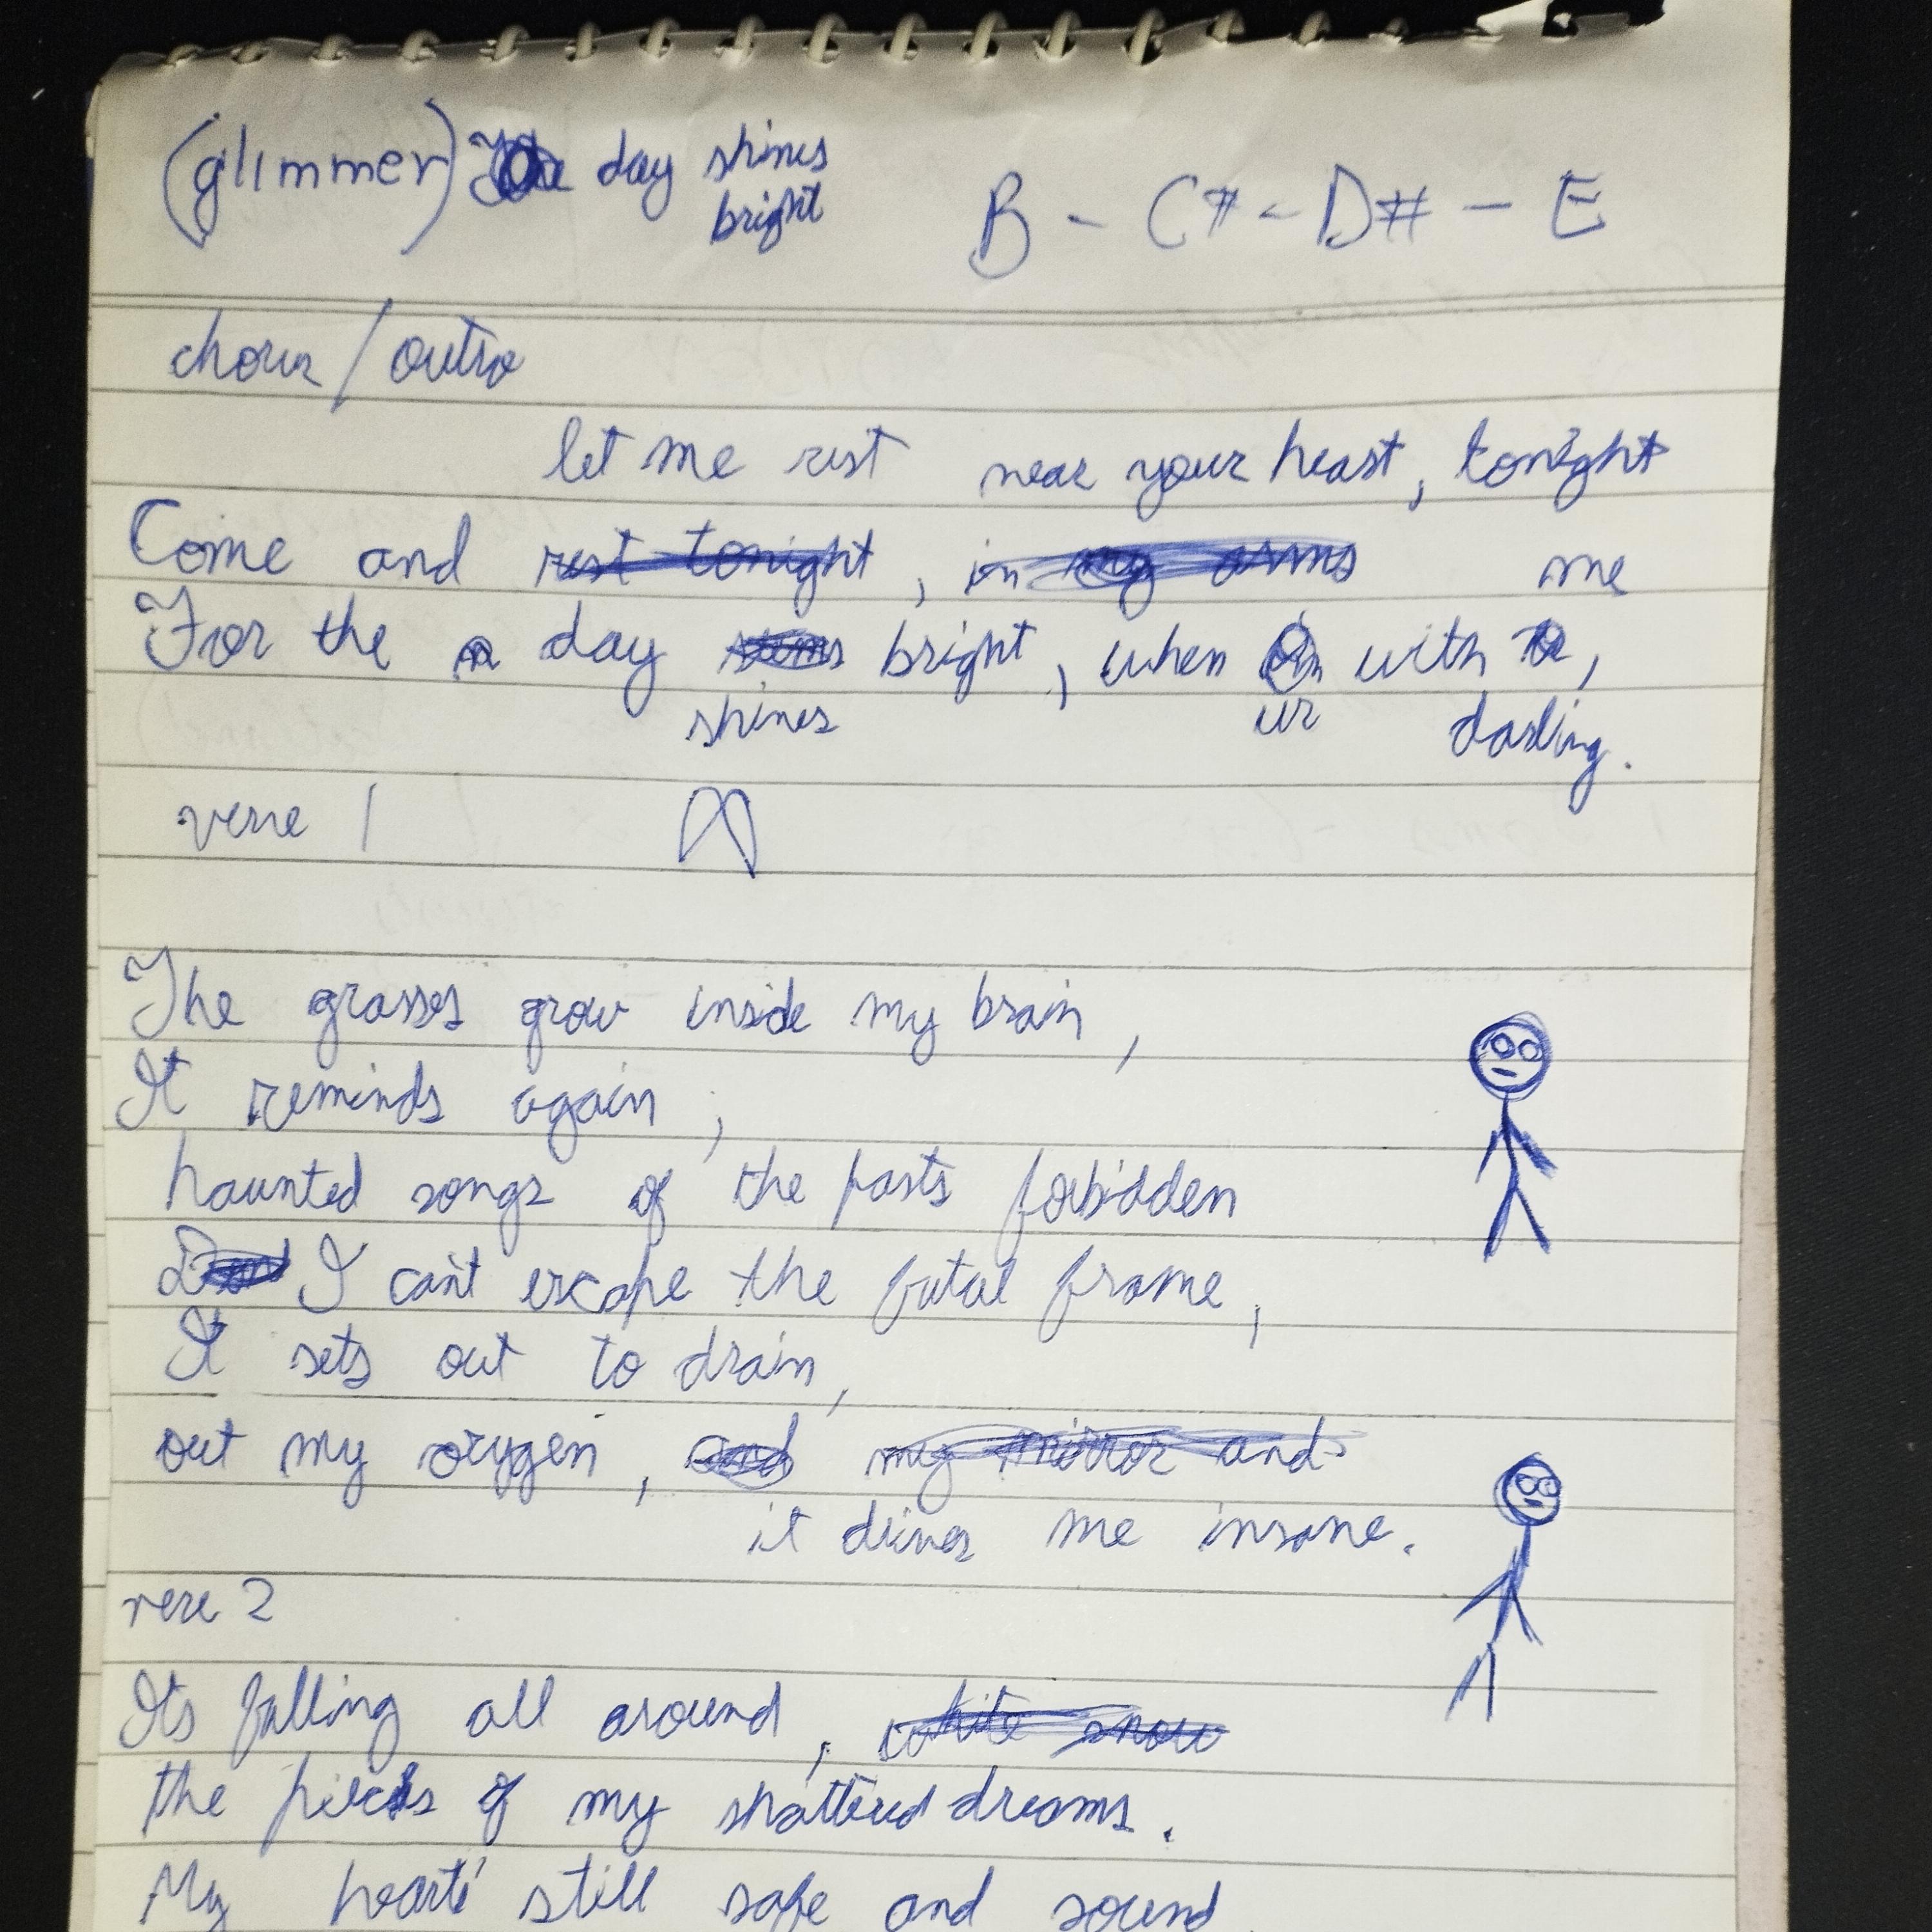 (glimmer) The day shines
bright
B - C# - D# - E
chorus / outro
let me rest near your heart, tonight
Come and rest tonight, in my arms
me
For the day bright, when with,
shines ur darling.
verse 1
The grasses grow inside my brain,
It reminds again,
haunted songs of the pasts forbidden
I can't escape the fatal frame,
It sets out to drain,
out my oxygen, and my mirror and
it drives me insane.
verse 2
Its falling all around, white snow
the pieces of my shattered dreams.
My heart's still safe and sound.